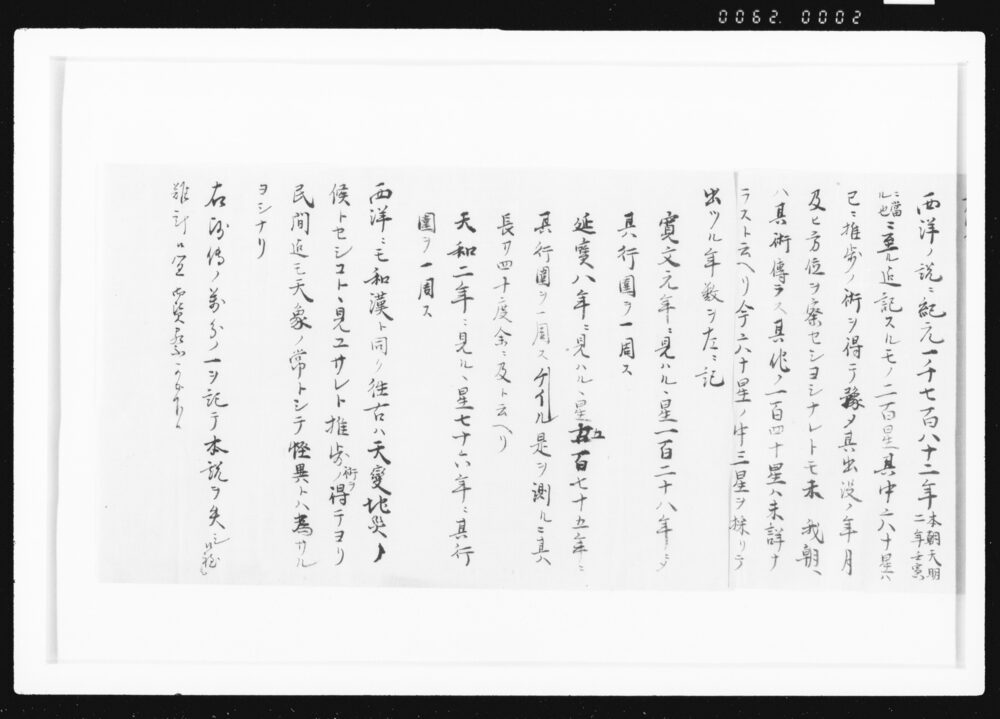 0062.0002
西洋ノ説ニ紀元一千七百八十二年本朝天明二年壬寅
ニ當ル也ニ至ル迄記スルモノ二百星其中六十星ハ
已ニ推歩ノ術ヲ得テ豫メ其出没ノ年月
及ヒ方位ヲ察セシヨシナレトモ未我朝ヘ
ハ其術傳ラス其他ノ一百四十星ハ未詳ナ
ラスト云ヘリ今六十星ノ中三星ヲ採リテ
出ツル年数ヲ左ニ記
寛文元年ニ見ハル、星一百二十八年ニシテ
其行圏ヲ一周ス
延寶八年ニ見ハル、星五百七十五年ニ
其行圏ヲ一周スケイル是ヲ測ルニ其ハ
長サ四十度余ニ及ト云ヘリ
天和二年ニ見ル、星七十六年ニ其行
圏ヲ一周ス
西洋ニモ和漢ト同ク往古ハ天變地災ノ
候トセシコト、見ユサレト推歩ノ術ヲ得テヨリ
民間迄モ天象ノ常トシテ怪異トハ為サル
ヨシナリ
右 傳ノ萬分ノ一ヲ記テ本説ヲ失
難計